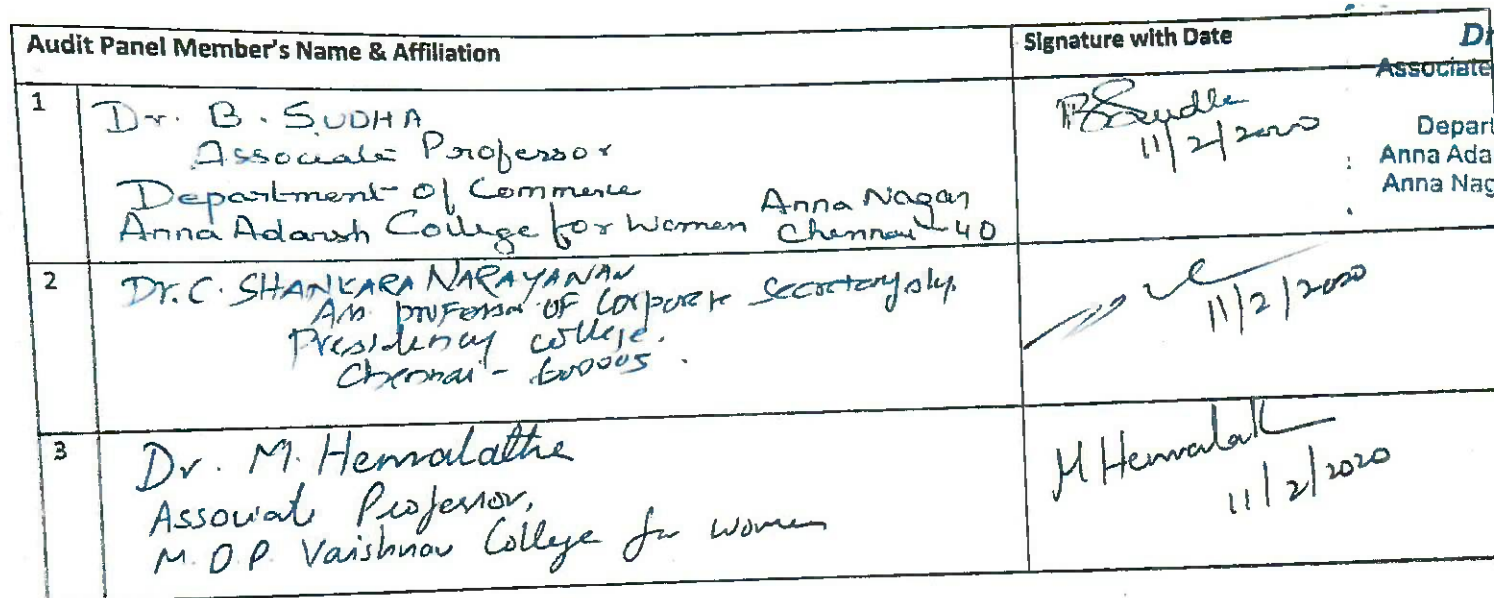 Audit Panel Member's Name & Affiliation
Signature with Date
Dr
Associate
Depart
Anna Ada
Anna Nag
1
Dr. B. SUDHA
Associate Professor
Department of Commerce
Anna Adarsh College for Women
Anna Nagar
Chennai - 40
BSudha
11/2/2020
2
Dr. C. SHANKARA NARAYANAN
professor OF Corporate Secretaryship
Presidency college.
Chennai - 600005.
11/2/2020
3
Dr. M. Hemalatha
Associate Professor,
M.O.P. Vaishnav College for women
M Hemalat
11/2/2020